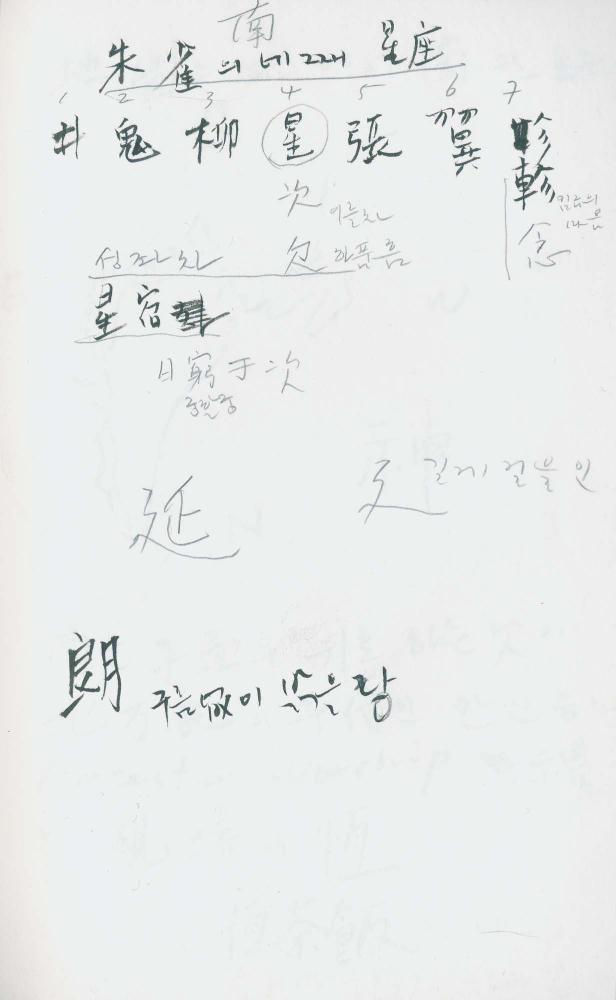 南
朱雀의 네째 星座
1 2 3 4 5 6 7
井 鬼 柳 星 張 翼 軫
軫
次 이을차
念
성좌차 欠 하품흠
星宿
日窮于次
궁할궁
延 廴 길게걸을인
朗 구름없이 밝을랑